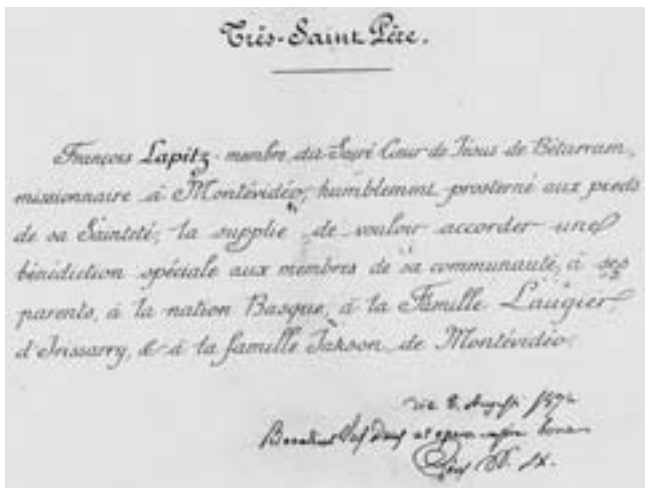 Très-Saint Père.
François Lapitz membre du Sacré Cœur de Jésus de Bétarram,
missionnaire à Montévidéo, humblement prosterné aux pieds
de sa Sainteté, la supplie de vouloir accorder une
bénédiction spéciale aux membres de sa communauté, à ses
parents, à la nation Basque, à la Famille Laugier
d'Irissarry, & à la famille Jakson de Montévidéo.
die 8. Augusti
Deus et
Pius P. IX.